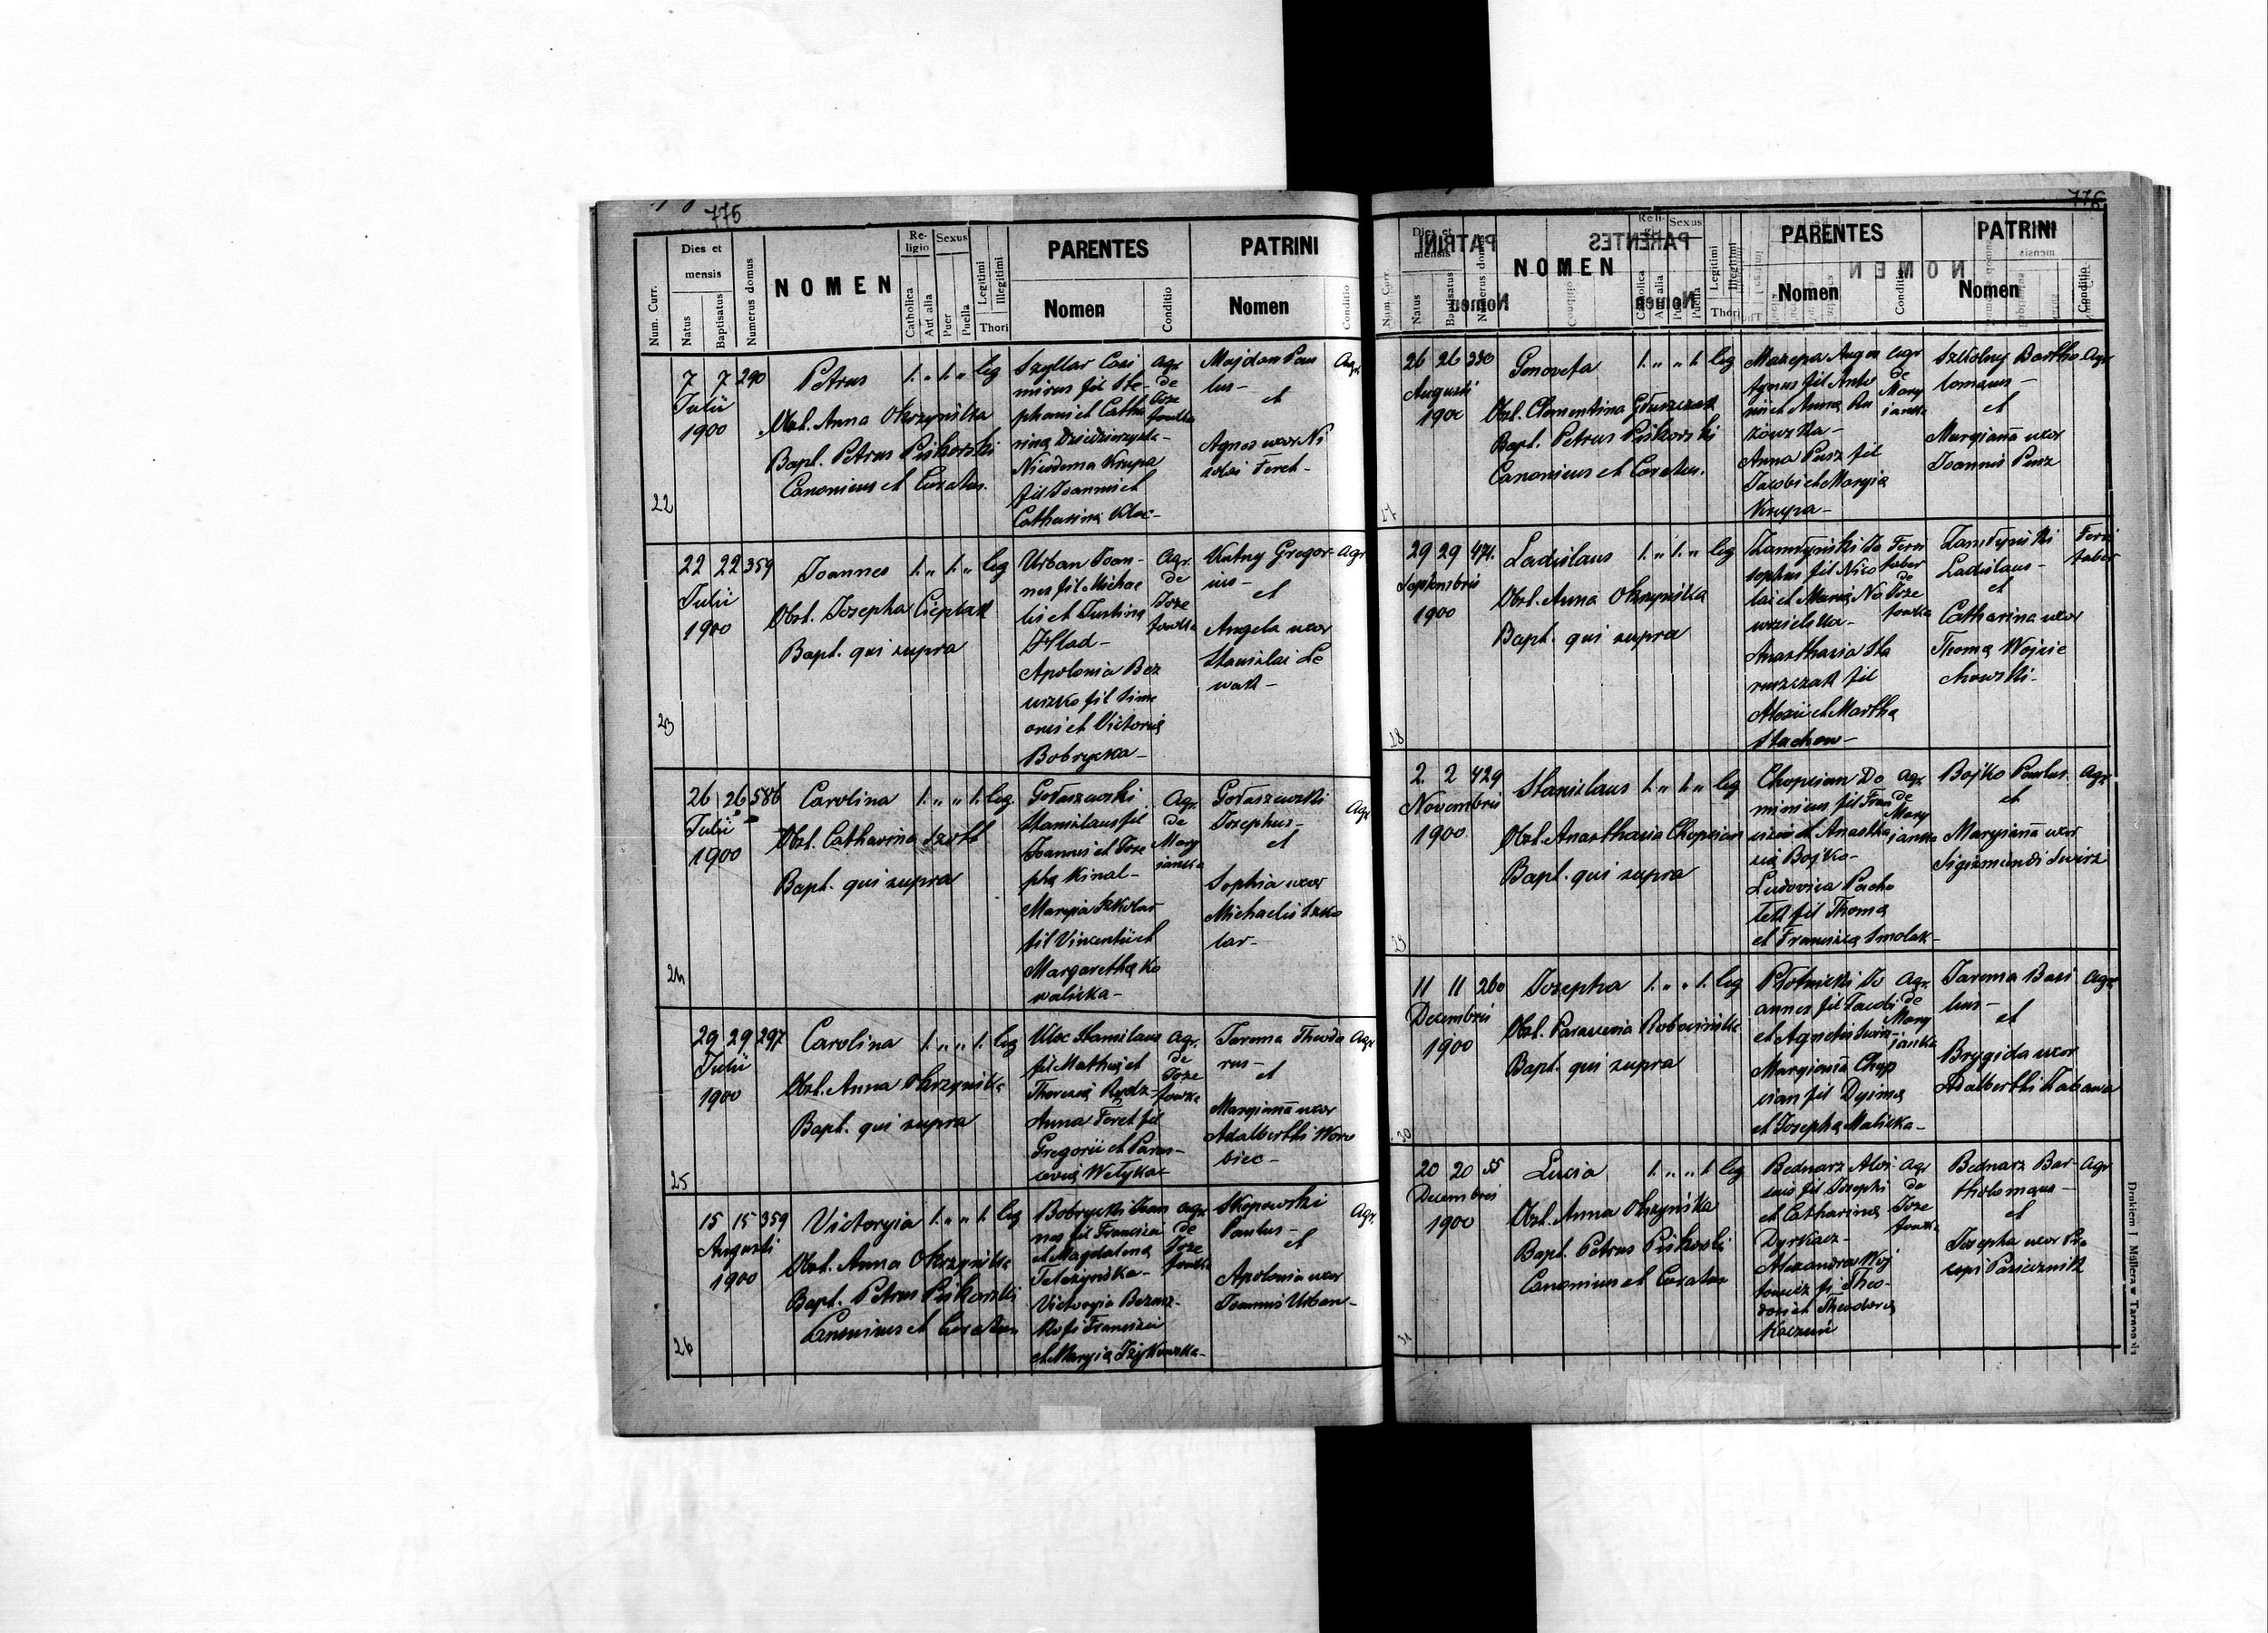 775
Num. Curr.
Dies et mensis
Natus
Baptisatus
Numerus domus
NOMEN
Religio
Catholica
Aut alia
Sexus
Puer
Puella
Legitimi
Illegitimi
Thori
PARENTES
Nomen
Conditio
PATRINI
Nomen
Conditio
22
7 7 290
Julii
1900
Petrus 1. „ 1. „ leg
Obst. Anna Okrzyńska
Bapt. Petrus Piskorski
Canonicus et Curatus.
Szyllar Casi
mirus fil Ste-
phani et Catha
rina
Nicodema Krupa
fil Joannis et
Catharina Kloc-
Agr.
de
Joze
fowka
Majdan Pau
lus-
et
Agnes uxor Ni
colai Feret-
Agr.
23
22 22 359
Julii
1900
Joannes 1. „ 1. „ leg
Obst. Josepha Cieplak
Bapt. qui supra
Urban Joan-
nes fil Michae
lis et Justina
Hlad-
Apolonia Bez
uszko fil Sime
onis et Victoria
Bobrycka-
Agr.
de
Joze
fowka
Kutny Gregor-
ius-
et
Angela uxor
Stanislai Le
wak-
Agr
24
26 26 586
Julii
1900
Carolina 1. „ „ 1. leg.
Obst. Catharina Szott
Bapt. qui supra
Gołaszewski
Stanislaus fil
Joannis et Jose
pha Kinal-
Maryia Szkolar
fil Vincentii et
Margaretha Ko
walicka-
Agr.
de
Mary
janka
Gołaszewski
Josephus-
et
Sophia uxor
Michaelis Szko
lar-
Agr
25
29 29 297
Julii
1900
Carolina 1. „ „ 1. leg
Obst. Anna Okrzyńska
Bapt. qui supra
Kloc Stanislaus
fil Mathei et
Theresia Rydz-
Anna Feret fil
Gregorii et Paras-
cevia Wełyka-
Agr.
de
Joze
fowka
Jarema Theodo
rus-
et
Maryianna uxor
Adalberthi Woro
biec-
Agr
26
15 15 359
Augusti
1900
Victoryia 1. „ „ 1. leg
Obst. Anna Okrzyńska
Bapt. Petrus Piskorski
Canonicus et Curatus
Bobrycki Joan
nes fil Francisci
et Magdalena
Teleżyńska-
Victoryia Bezusz-
ko fi Francisci
et Maryia
Agr
de
Joze
fowka
Skopowski
Paulus-
et
Apolonia uxor
Joannis Urban-
Agr.
776
Num. Curr.
Dies et mensis
Natus
Baptisatus
Numerus domus
NOMEN
Religio
Catholica
Aut alia
Sexus
Puer
Puella
Legitimi
Illegitimi
Thori
PARENTES
Nomen
Conditio
PATRINI
Nomen
Conditio
27
26 26 330
Augusti
1900
Genovefa 1. „ „ 1. leg
Obst. Clementina Głuszczak
Bapt. Petrus Piskorski
Canonicus et Curatus.
Mazepa
fil Anto
nii et Anna
Anna Pusz fil
Jacobi et Maryia
Krupa-
Agr
de
Mary
janka
Szkolny Bartho
lomaeus-
et
Maryianna uxor
Joannis Pusz
Agr
28
29 29 471.
Septembris
1900
Ladislaus 1. „ 1. „ leg
Obst. Anna Okrzyńska
Bapt. qui supra
Zamłyński Jo
sephus fil Nico
lai et Maria No
wosielska-
Anasthasia Sta
ruszczak fil
Alexii et Martha
Stachow-
Ferri
faber
de
Joze
fowka
Zamłyński
Ladislaus-
et
Catharina uxor
Thoma Wojcie
chowski-
Ferri
faber
29
2. 2 429
Novembris
1900.
Stanislaus 1. „ 1. „ leg
Obst. Anasthasia Chopcian
Bapt. qui supra
Chopcian Do
minicus fil Fran
cisci et Anastha
sia Bojko-
Ludovica Pacho
łek fil Thoma
et Francisca Smolak-
Agr.
de
Mary
janka
Bojko Paulus.
et
Maryianna uxor
Sigismundi Swirz
Agr.
30
11 11 260
Decembris
1900
Josepha 1. „ „ 1. leg
Obst. Parascevia
Bapt. qui supra
Płotnicki Jo
annes fil Jacobi
et Agnetis
Maryianna Chop
cian fil Dyima
et Josepha Malicka-
Agr.
de
Mary
janka
Jarema Basi
lius-
et
Brygida uxor
Adalberthi Kabana
Agr.
31
20 20 55
Decembris
1900
Lucia 1. „ „ 1. leg
Obst. Anna Okrzyńska
Bapt. Petrus Piskorski
Canonicus et Curatus
Bednarz Aloi
sius fil Josephi
et Catharina
Dyrkacz-
Alexandra Woj
towicz fi Theo-
dori et Theodora
Agr
de
Joze
fowka
Bednarz Bar-
tholomaeus-
et
Josepha uxor
Pasiecznik
Agr
Drukiem J. Müllera w Tarnopolu